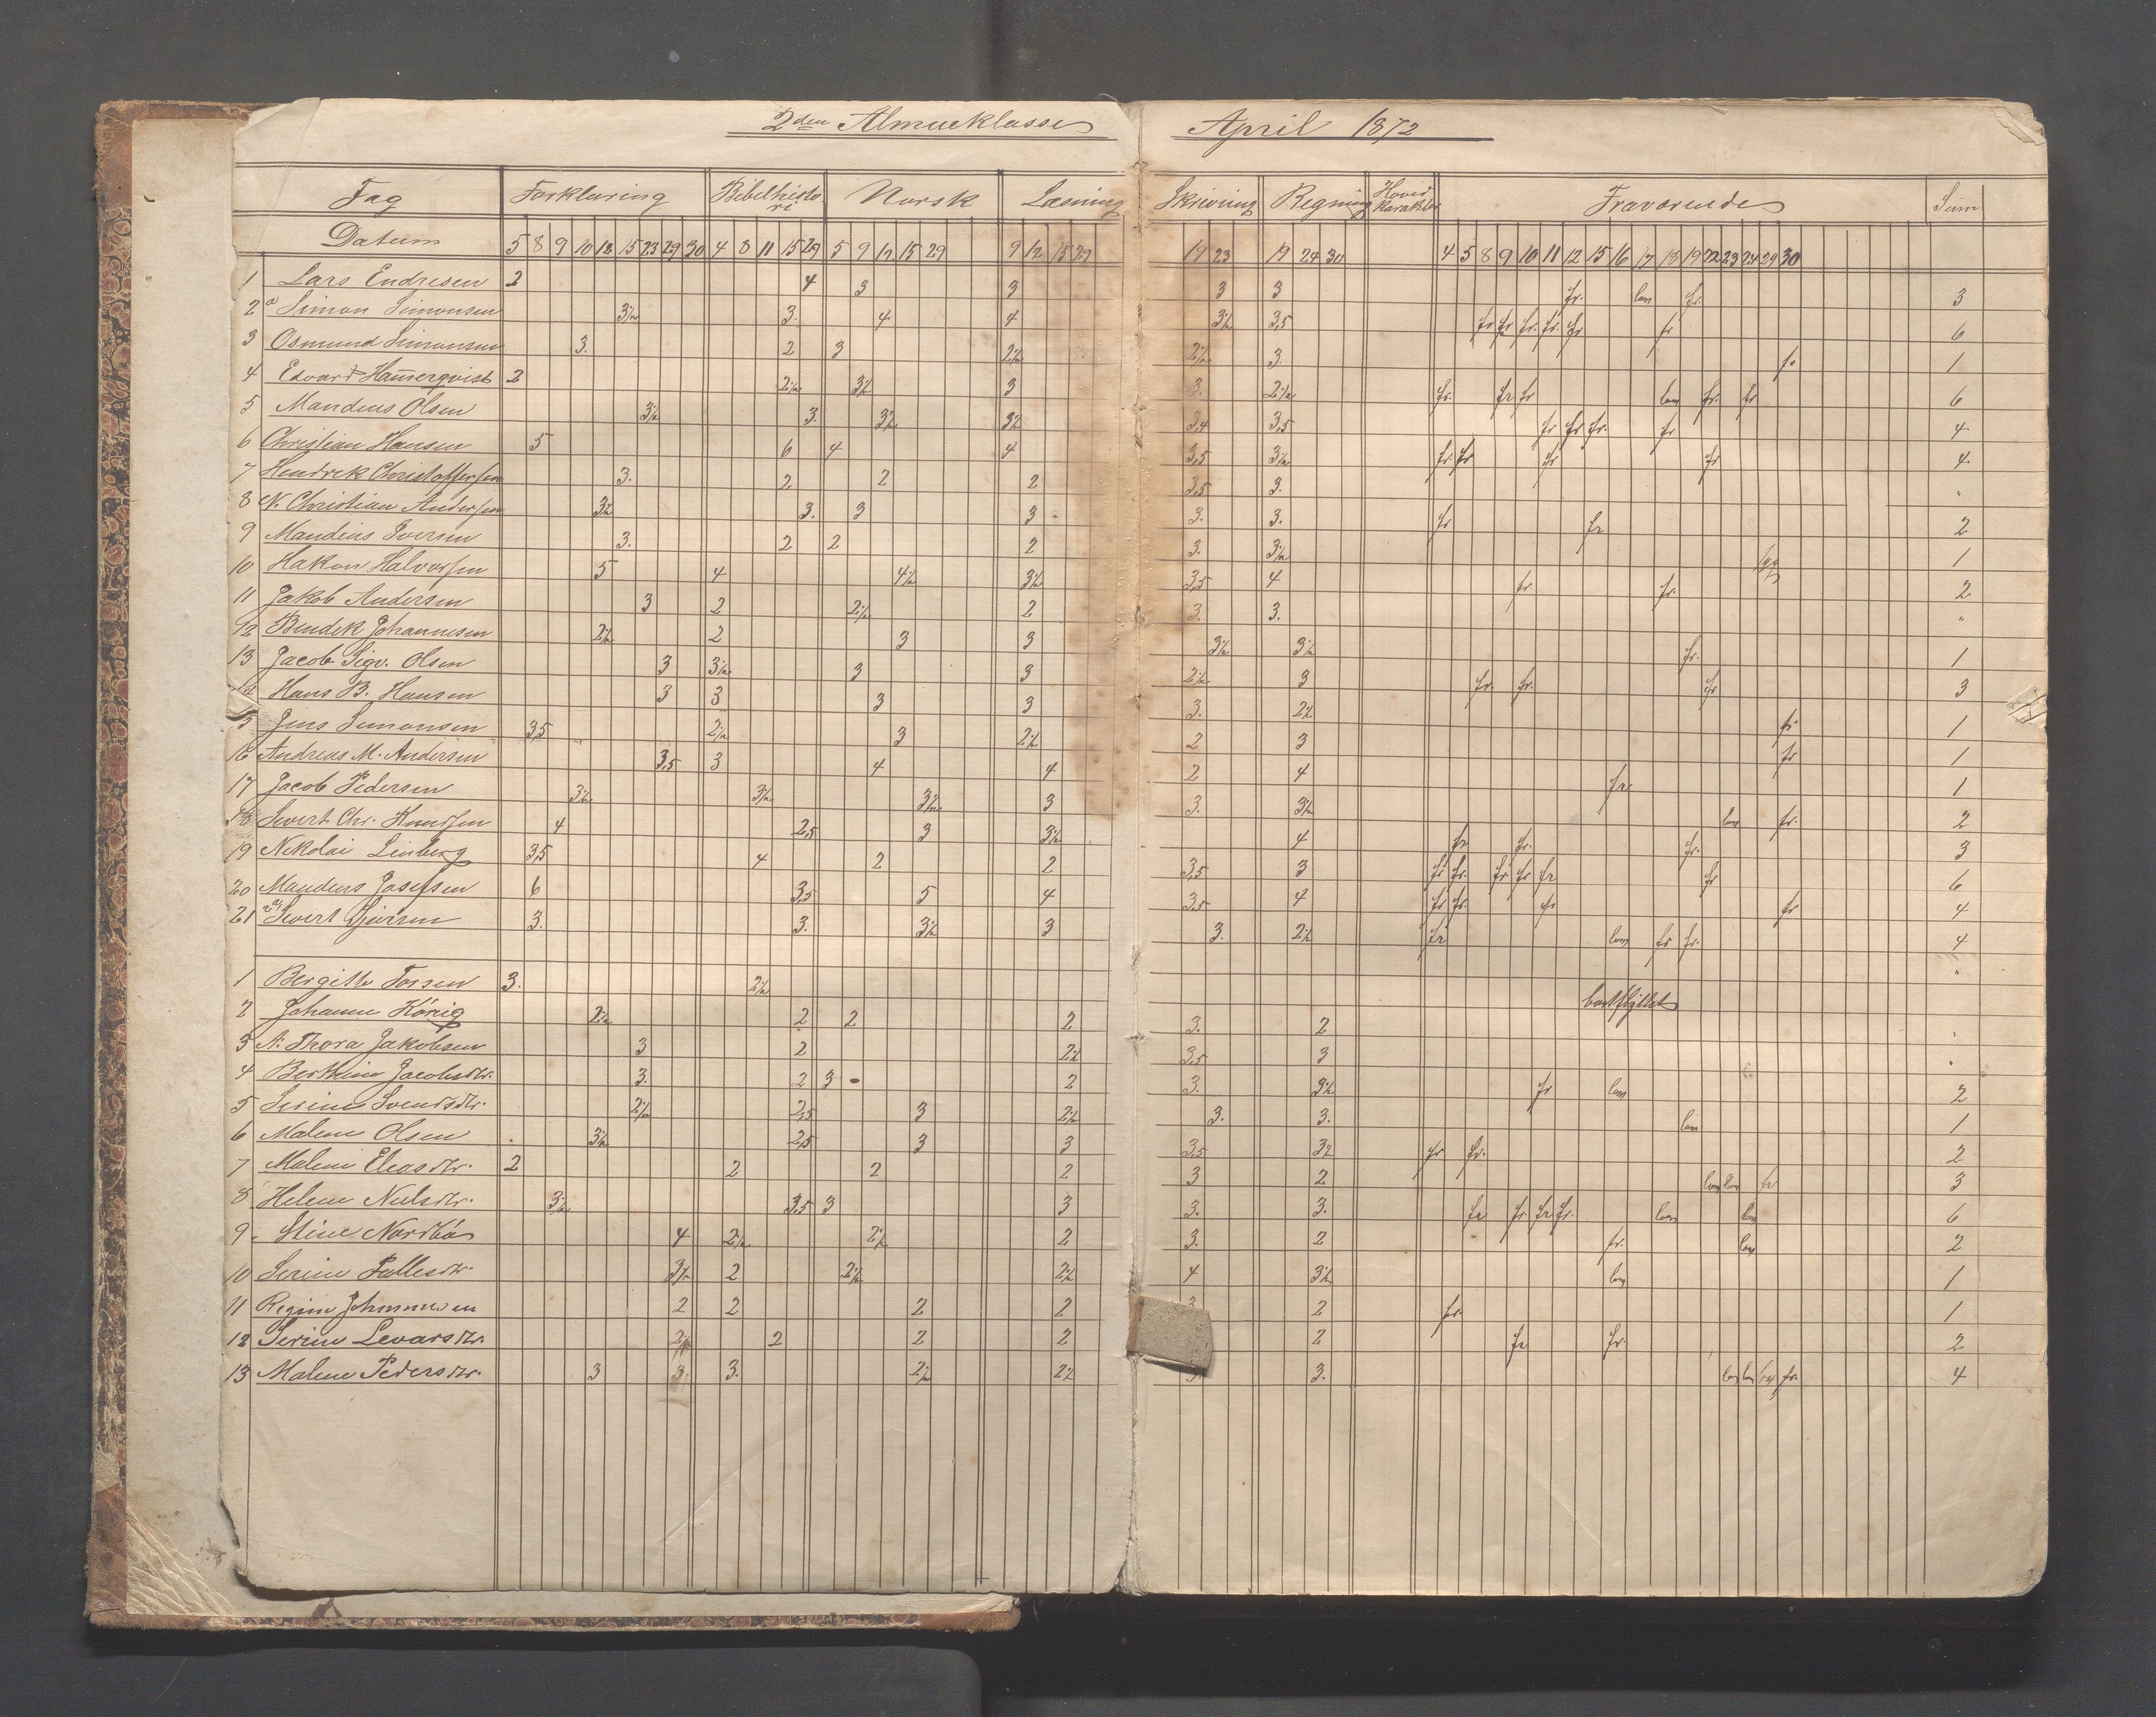 2den Almueklasse April 1872
Fag Forklaring Bibelhistori Norsk Læsning Skrivning Regning Hovid Karakter Fraværende Sum
Datum 5 8 9 10 12 15 23 29 30 4 8 11 15 29 5 9 12 15 29 9 12 15 29 19 23 19 24 30 4 5 8 9 10 11 12 15 16 17 18 19 22 23 24 29 30
1 Lars Endresen 2 4 3 3 3 3 fr. lov fr. 3
2 Simon Simonsen 3½ 3. 4 4 3½ 3,5 fr fr fr. fr. fr fr 6
3 Osmund Simonsen 3. 2 3 2½ 2½ 3. fr 1
4 Edvard Hamerqvist 2 2½ 3½ 3 3. 2½ fr. fr fr lov fr. fr 6
5 Mandius Olsen 3½ 3. 3½ 3½ 3,4 3,5 fr fr fr. fr 4
6 Christian Hansen 5 6 4 4 3,5 3½ fr. fr fr fr 4
7 Hendrek Christoffersen 3. 2 2 2 3,5 3. "
8 N. Christian Andersen 3½ 3. 3 3 3. 3. fr fr 2
9 Mandius Iversen 3. 2 2 2 3. 3½ 1
10 Hakon Halvorsen 5 4 4½ 3½ 3,5 4 fr. fr. 2
11 Jakob Andersen 3 2 2½ 2 3. 3. "
12 Bendek Johannesen 2½ 2 3 3 3½ 3½ fr. 1
13 Jacob Sigv. Olsen 3 3½ 3 3 2½ 3 fr. fr. fr 3
14 Hans B. Hansen 3 3 3 3 3. 2½ fr 1
15 Jens Simonsen 3,5 2½ 3 2½ 2 3 fr 1
16 Andreas M. Andersen 3,5 3 4 4 2 4 fr 1
17 Jacob Pedersen 3½ 3½ 3½ 3 3. 3½ lov fr. 2
18 Sivert Chr. Knudsen 4 2,5 3 3½ 4 fr fr. fr. 3
19 Nekolai Linberg 3,5 4 2 2 3,5 3 fr fr. fr fr fr fr 6
20 Mandius Josefsen 6 3,5 5 4 3,5 4 fr fr. fr fr 4
21 Sivert 3. 3. 3½ 3 3. 2½ fr lov fr fr. 4
1 Bergitte Torsen 3. 2½ bortflyttet "
2 Johanne König 2½ 2 2 2 3. 2 "
3 A. Thora Jakobsen 3 2 2½ 3,5 3 "
4 Berthine Jacobsdtr. 3. 2 3 2 3. 3½ fr lov 2
5 Serine Svendsdtr. 2½ 2,5 3 2½ 3. 3. lov 1
6 Malene Olsen 3½ 2,5 3 3 3,5 3½ fr fr. 2
7 Maleni Eleasdtr. 2 2 2 2 3 2 lov lov fr 3
8 Helene Nielsdtr. 3½ 3,5 3 3 3. 3. fr fr fr fr. lov lov 6
9 Stine Nordbö 4 2½ 2½ 2 3. 2 fr. lov 2
10 Serine Pallesdtr. 3½ 2 2½ 2½ 4 3½ lov 1
11 Regine Johannesen 2 2 2 2 3 2 fr. 1
12 Serine Levarsdtr. 2½ 2 2 2 2 fr fr. 2
13 Malene Pedersdtr. 3 3. 3. 2½ 2½ 3. lov lov fr. 4